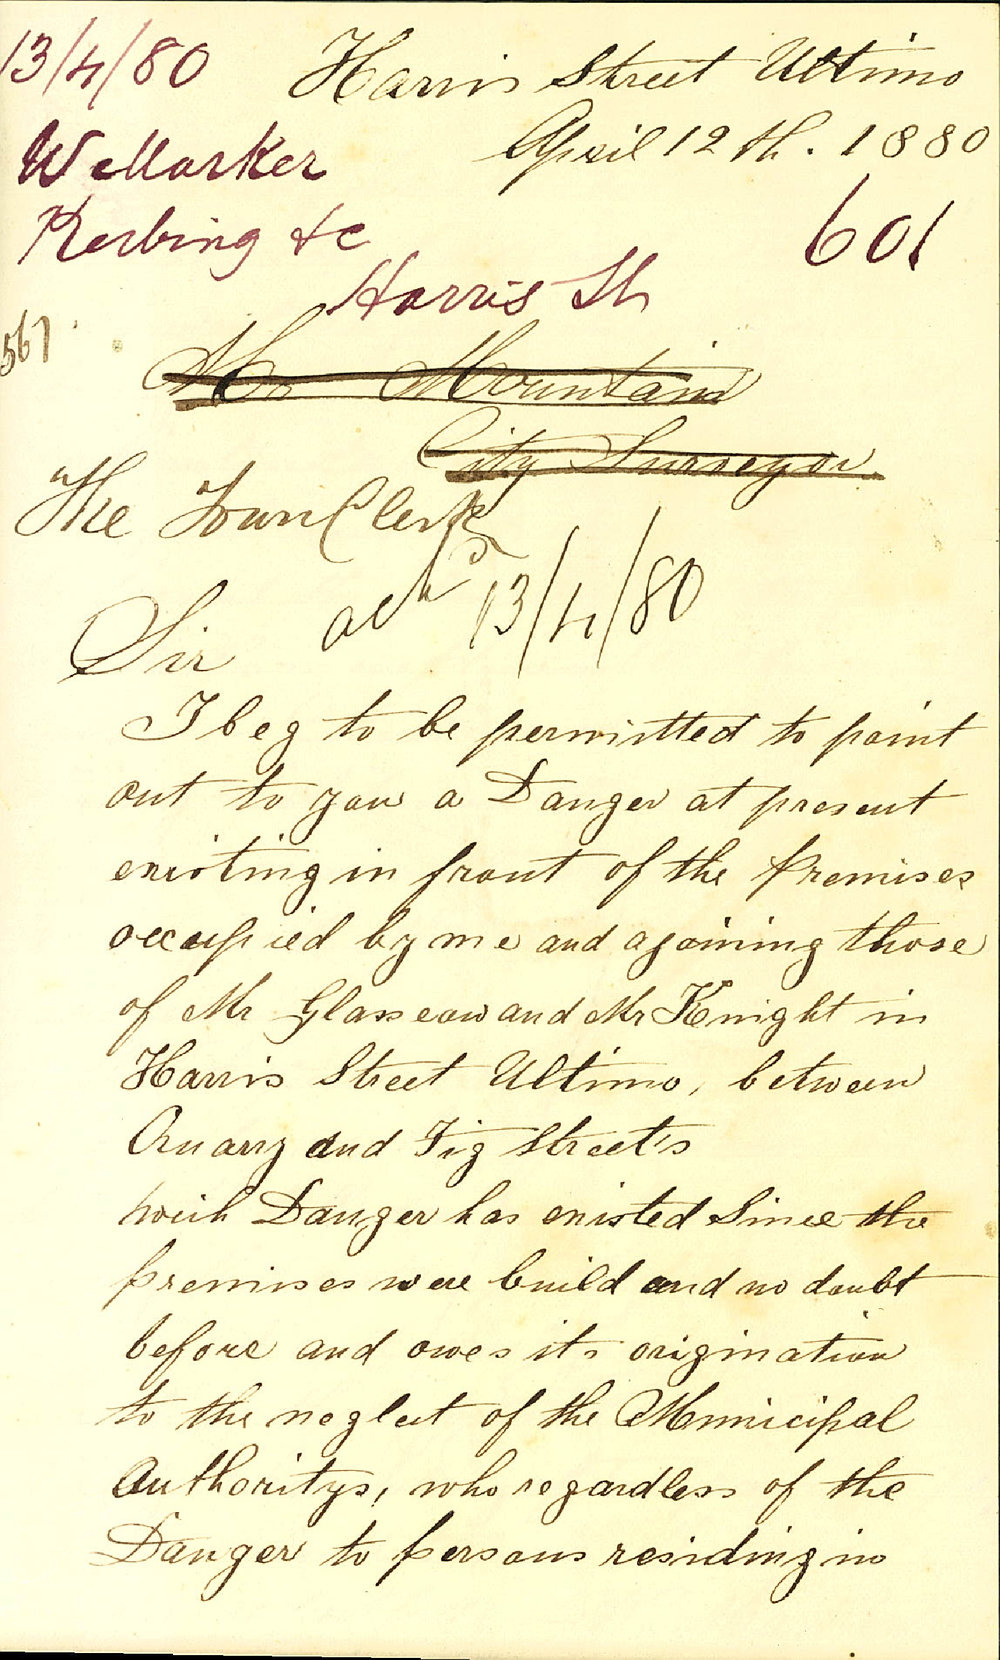 13/4/80
Harris Street Ultimo
April 12th. 1880
Kerbing &c
601
Harris St
567
Mr Mountain
City Surveyor
The Town Clerk
ackd 13/4/80
Sir
I beg to be permitted to point
out to you a Danger at present
existing in front of the Premises
occupied by me and ajoining those
of Mr Glasscow and Mr Knight in
Harris Street Ultimo, between
Quarry and Fig Street's
wich Danger has existed Since the
premises were build and no doubt
before and owes its origination
to the neglect of the Municipal
Authoritys, who regardless of the
Danger to persons residing in